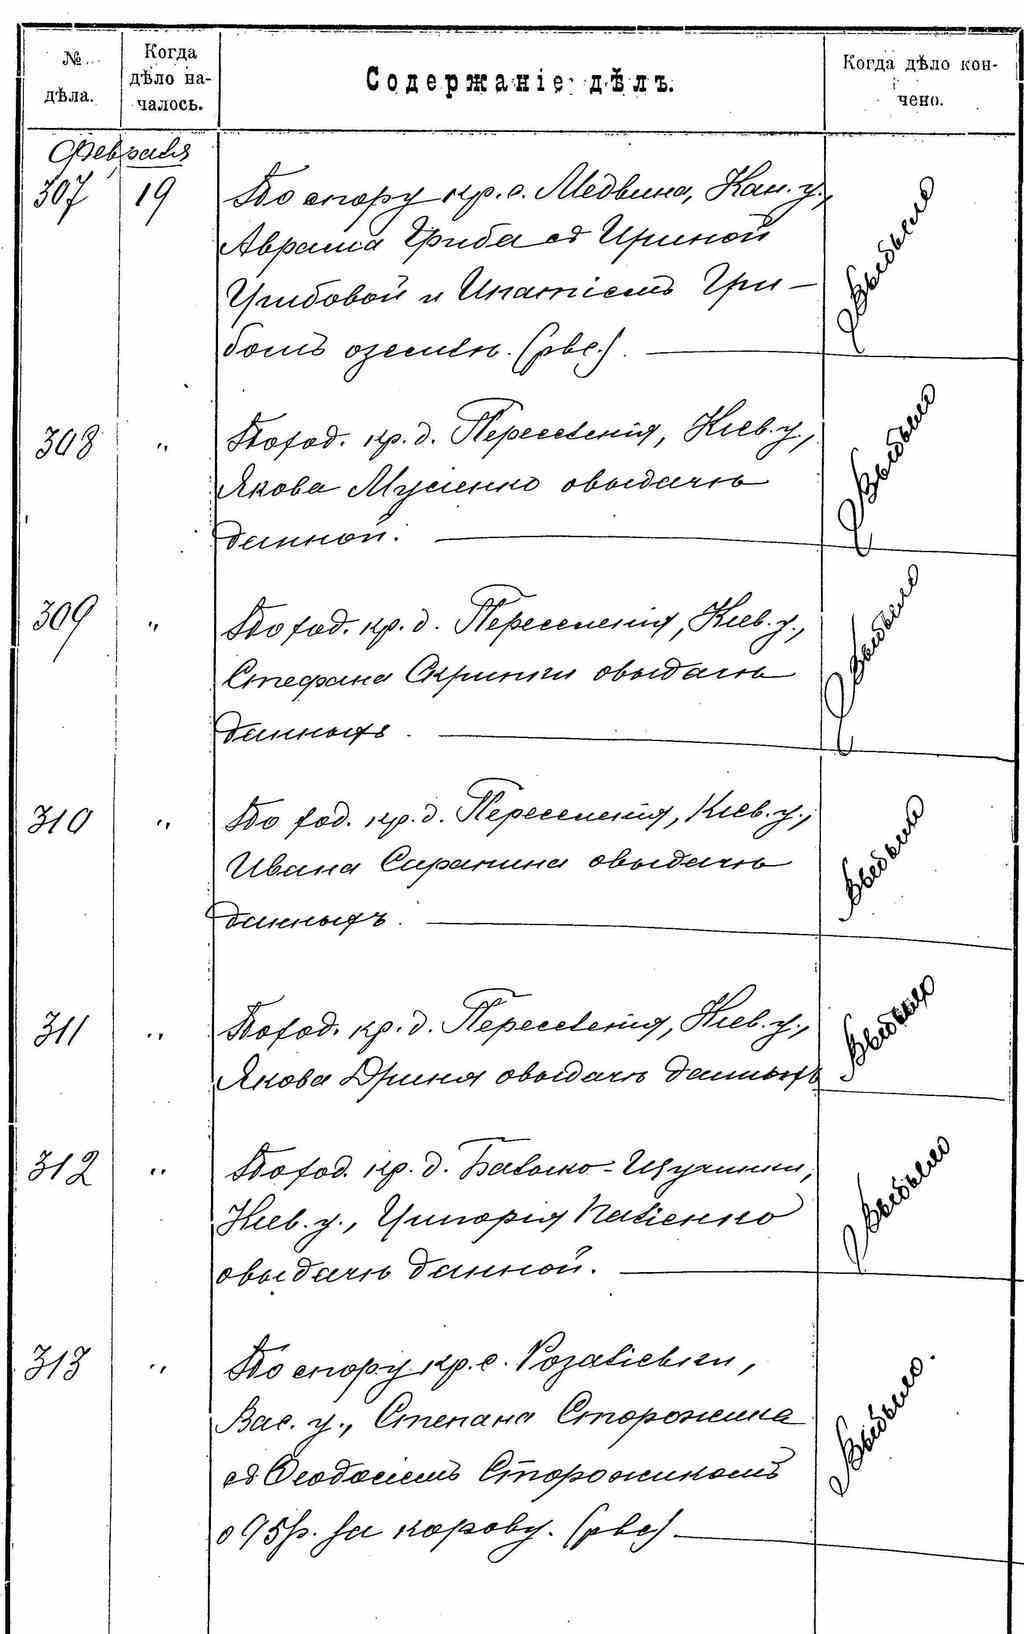 № дѣла.
Когда дѣло на-чалось.
Содержаніе дѣлъ.
Когда дѣло кон-чено.
Февраля
307 19 По спору кр. с. Медвина, Кан. у.,
Аврама Гриба съ Ириной
Грибовой и Ипатіемъ Гри-
бомъ о землѣ.
Выбыло
308 " По ход. кр. д. Переселенія, Кіев. у.,
Якова Мусіенко о выдачѣ
данной.
Выбыло
309 " По ход. кр. д. Переселенія, Кіев. у.,
Стефана Скрипки о выдачѣ
данныхъ.
Выбыло
310 " По ход. кр. д. Переселенія, Кіев. у.,
Ивана о выдачѣ
данныхъ.
Выбыло
311 " По ход. кр. д. Переселенія, Кіев. у.,
Якова о выдачѣ данныхъ
Выбыло
312 " По ход. кр. д. Балыко-Щучинки,
Кіев. у., Григорія Паліенко
о выдачѣ данной.
Выбыло
313 " По спору кр. с. Розаліевки,
Вас. у., Степана Сторожика
съ Ѳеодосіемъ Сторожикомъ
о 95 р. за корову.
Выбыло.